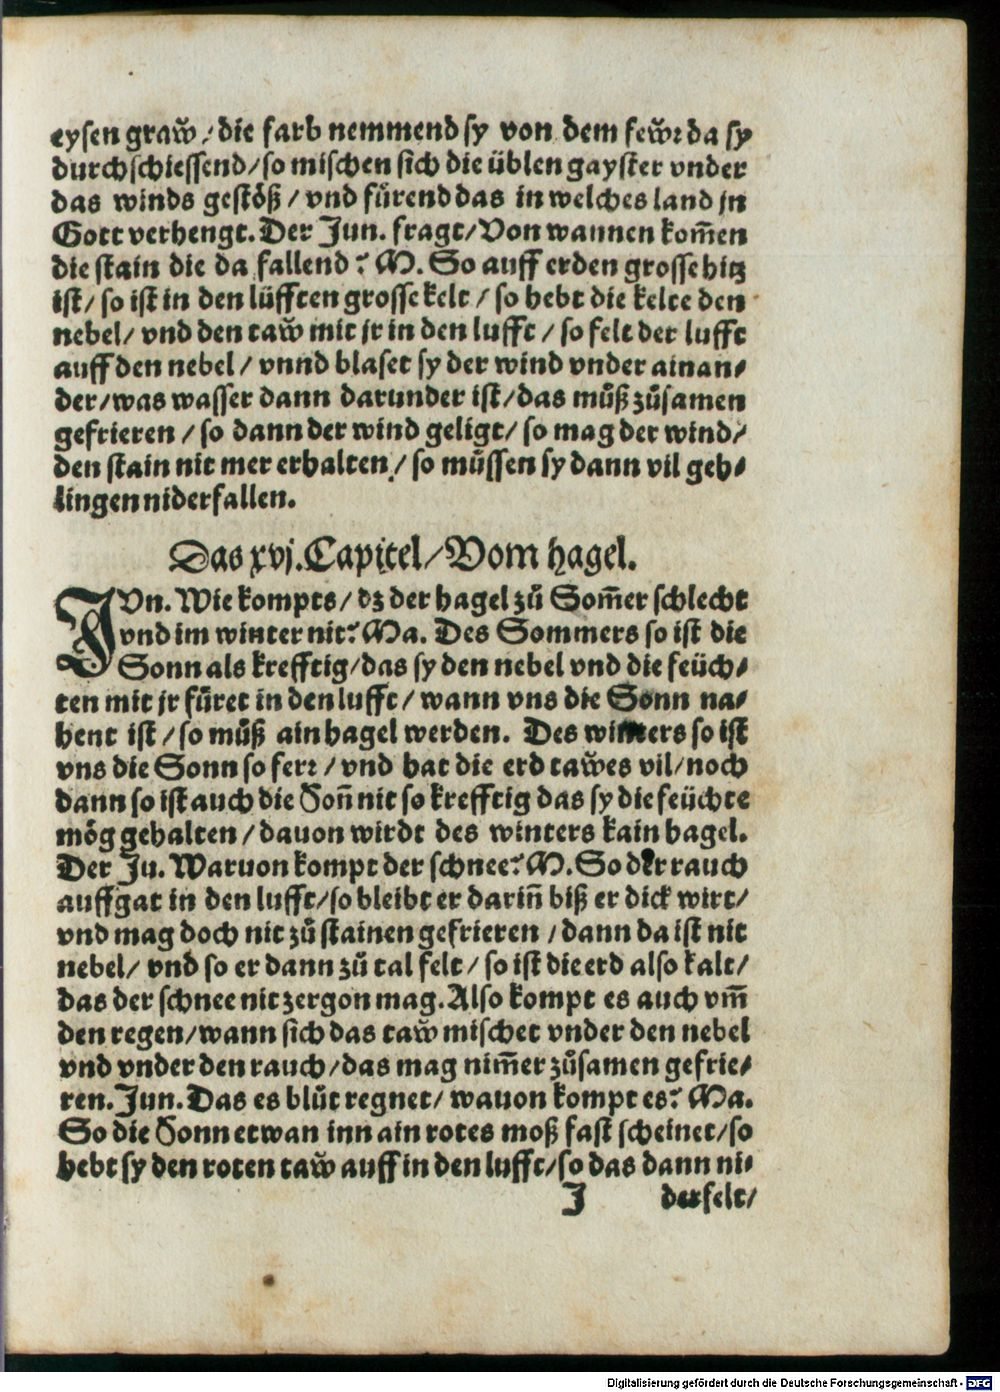 eysen graw̆ / die farb nemmend sy von dem few̆r da sy
durchschiessend / so mischen sich die üblen gayster vnder
das winds gestöß / vnd fürend das in welches land jn
Gott verhengt. Der Jun. fragt / Von wannen kom̃en
die stain die da fallend? M. So auff erden grosse hitz
ist / so ist in den lüfften grosse kelt / so hebt die kelte den
nebel / vnd den taw̆ mit jr in den lufft / so felt der lufft
auff den nebel / vnnd blaset sy der wind vnder ainan⸗
der / was wasser dann darunder ist / das můß zůsamen
gefrieren / so dann der wind geligt / so mag der wind /
den stain nit mer erhalten / so müssen sy dann vil geh⸗
lingen niderfallen.
Das xvj. Capitel / Vom hagel.
JVn. Wie kompts / dz der hagel zů Som̃er schlecht
vnd im winter nit? Ma. Des Sommers so ist die
Sonn als krefftig / das sy den nebel vnd die feüch⸗
ten mit jr füret in den lufft / wann vns die Sonn na⸗
hent ist / so můß ain hagel werden. Des winters so ist
vns die Sonn so ferr / vnd hat die erd taw̆es vil / noch
dann so ist auch die Son̄ nit so krefftig das sy die feüchte
mög gehalten / dauon wirdt des winters kain hagel.
Der Ju. Waruon kompt der schnee? M. So der rauch
auffgat in den lufft / so bleibt er darin̄ biß er dick wirt /
vnd mag doch nit zů stainen gefrieren / dann da ist nit
nebel / vnd so er dann zů tal felt / so ist die erd also kalt /
das der schnee nit zergon mag. Also kompt es auch vm̃
den regen / wann sich das taw̆ mischet vnder den nebel
vnd vnder den rauch / das mag nim̃er zůsamen gefrie⸗
ren. Jun. Das es blůt regnet / wauon kompt es? Ma.
So die Sonn etwan inn ain rotes moß fast scheinet / so
hebt sy den roten taw̆ auff in den lufft / so das dann ni⸗
J derfelt /
Digitalisierung gefördert durch die Deutsche Forschungsgemeinschaft - DFG